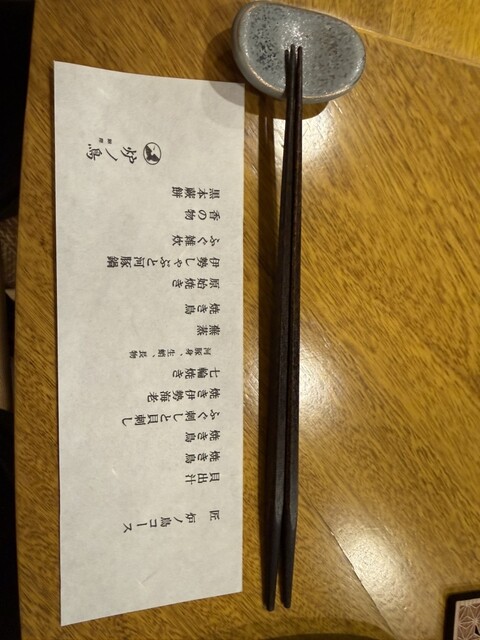 匠 炉ノ鳥コース
貝出汁
焼き鳥
焼き鳥
ふぐ刺しと貝刺し
焼き伊勢海老
七輪焼き
河豚身、生鮹、長物
蕪蒸
焼き鳥
原始焼き
伊勢しゃぶと河豚鍋
ふぐ雑炊
香の物
黒本蕨餅
炉ノ鳥